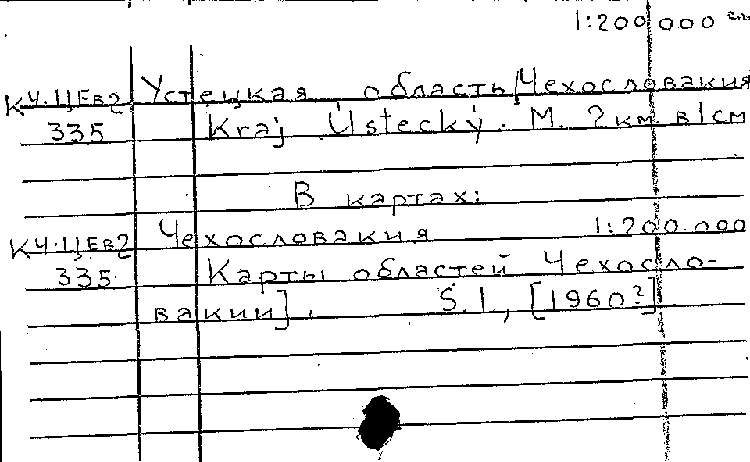 1:200 000
К4·ЦЕв2 Устецкая область/Чехословакия
335 Kraj Ústecký. М. 2 км в 1 см
В картах:
К4·ЦЕв2 Чехословакия 1:200.000
335 Карты областей Чехосло-
вакии]. S.l, [1960?]